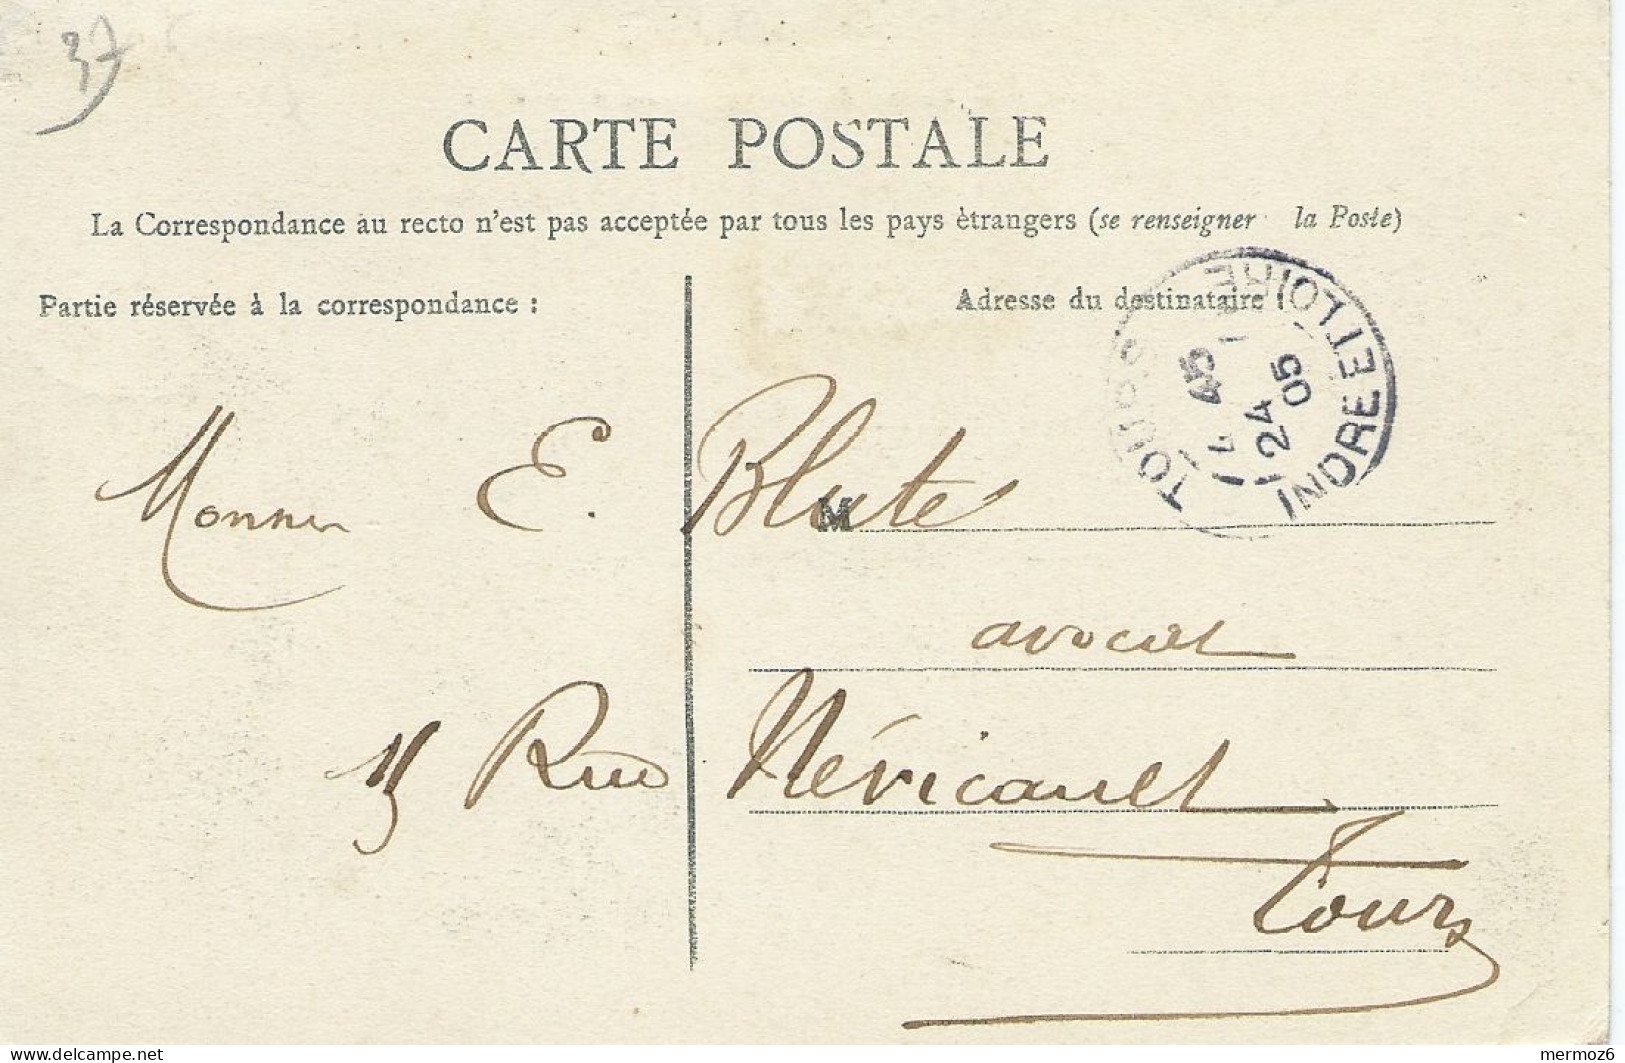 37
CARTE POSTALE
La Correspondance au recto n'est pas acceptée par tous les pays ètrangers (se renseigner la Poste)
Partie réservée à la correspondance :
Adresse du destinataire
TOURS
INDRE ET LOIRE
45
24
05
M
E. Blute
avocat
Rue Néricault
Tours
mermoz6